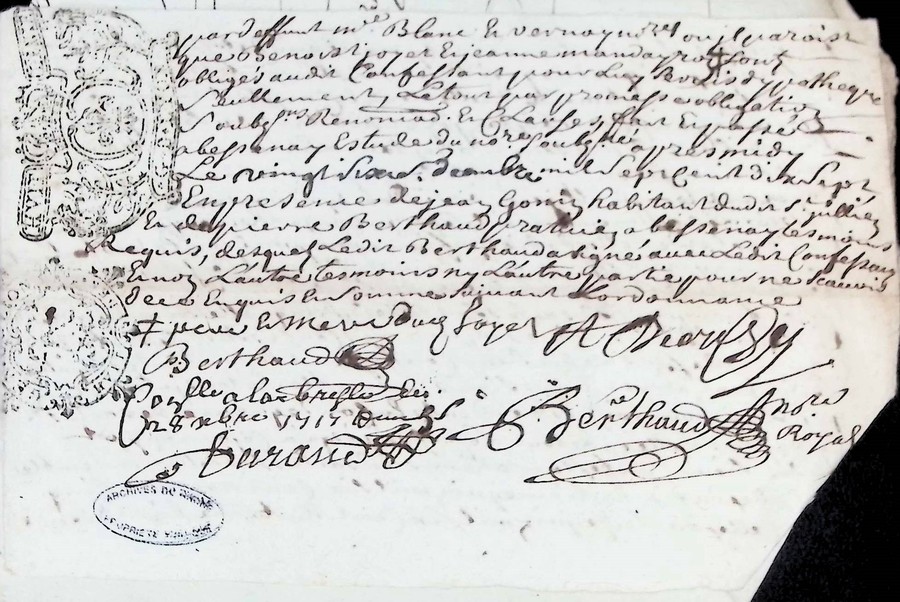 par deffunt m.re Blanc Et vernay no.res ou il paroist
que Benoist joyet Et jeanne manda
obligés audit Confessant pour Luy hypotheque
Seullement, Le tout par promesse obligation
Soub.ns Renonciaõ. Et Clauses, fait Et passé
a bessenay Estude du no.re Soubsné apres midy
Le vingt six.e decembre mil Sept Cent dix Sept
En presence de jean habitant dudit S.t jullien
Et de pierre Berthaud praticien a bessenay tesmoins
Requis, desquels Ledit Berthaud a signé avec Ledit Confessant
Et non L'autre tesmoins ny L'autre partie pour ne scavoir
de ce Enquis Et Sommé suivant L'ordonnance
‡ pere et Mere dud joyet
Berthaud
Con.llé a Larbresle Le
28 xbre 1717
Durand
P. Berthaud no.re
Royal
ARCHIVES DU RHONE
PROPRIETE PUBLIQUE